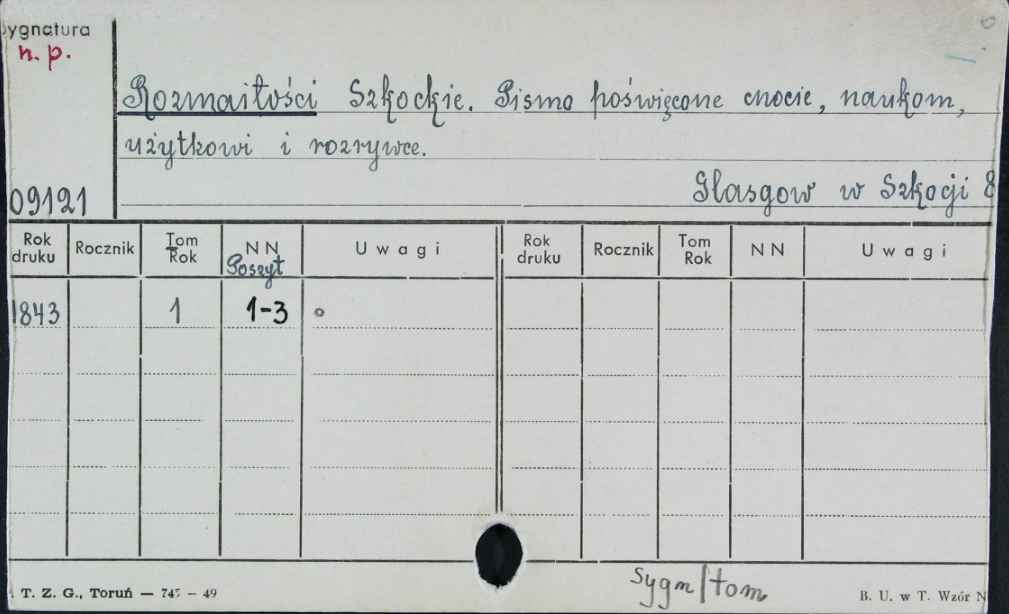 Sygnatura
n. p.
Rozmaitości Szkockie. Pismo poświęcone cnocie, naukom,
użytkowi i rozrywce.
Glasgow w Szkocji 8
09121
Rok druku Rocznik Tom Rok NN Poszyt Uwagi Rok druku Rocznik Tom Rok NN Uwagi
1843 1 1-3
T. Z. G., Toruń — 745 — 49
Sygn/tom
B. U. w T. Wzór N